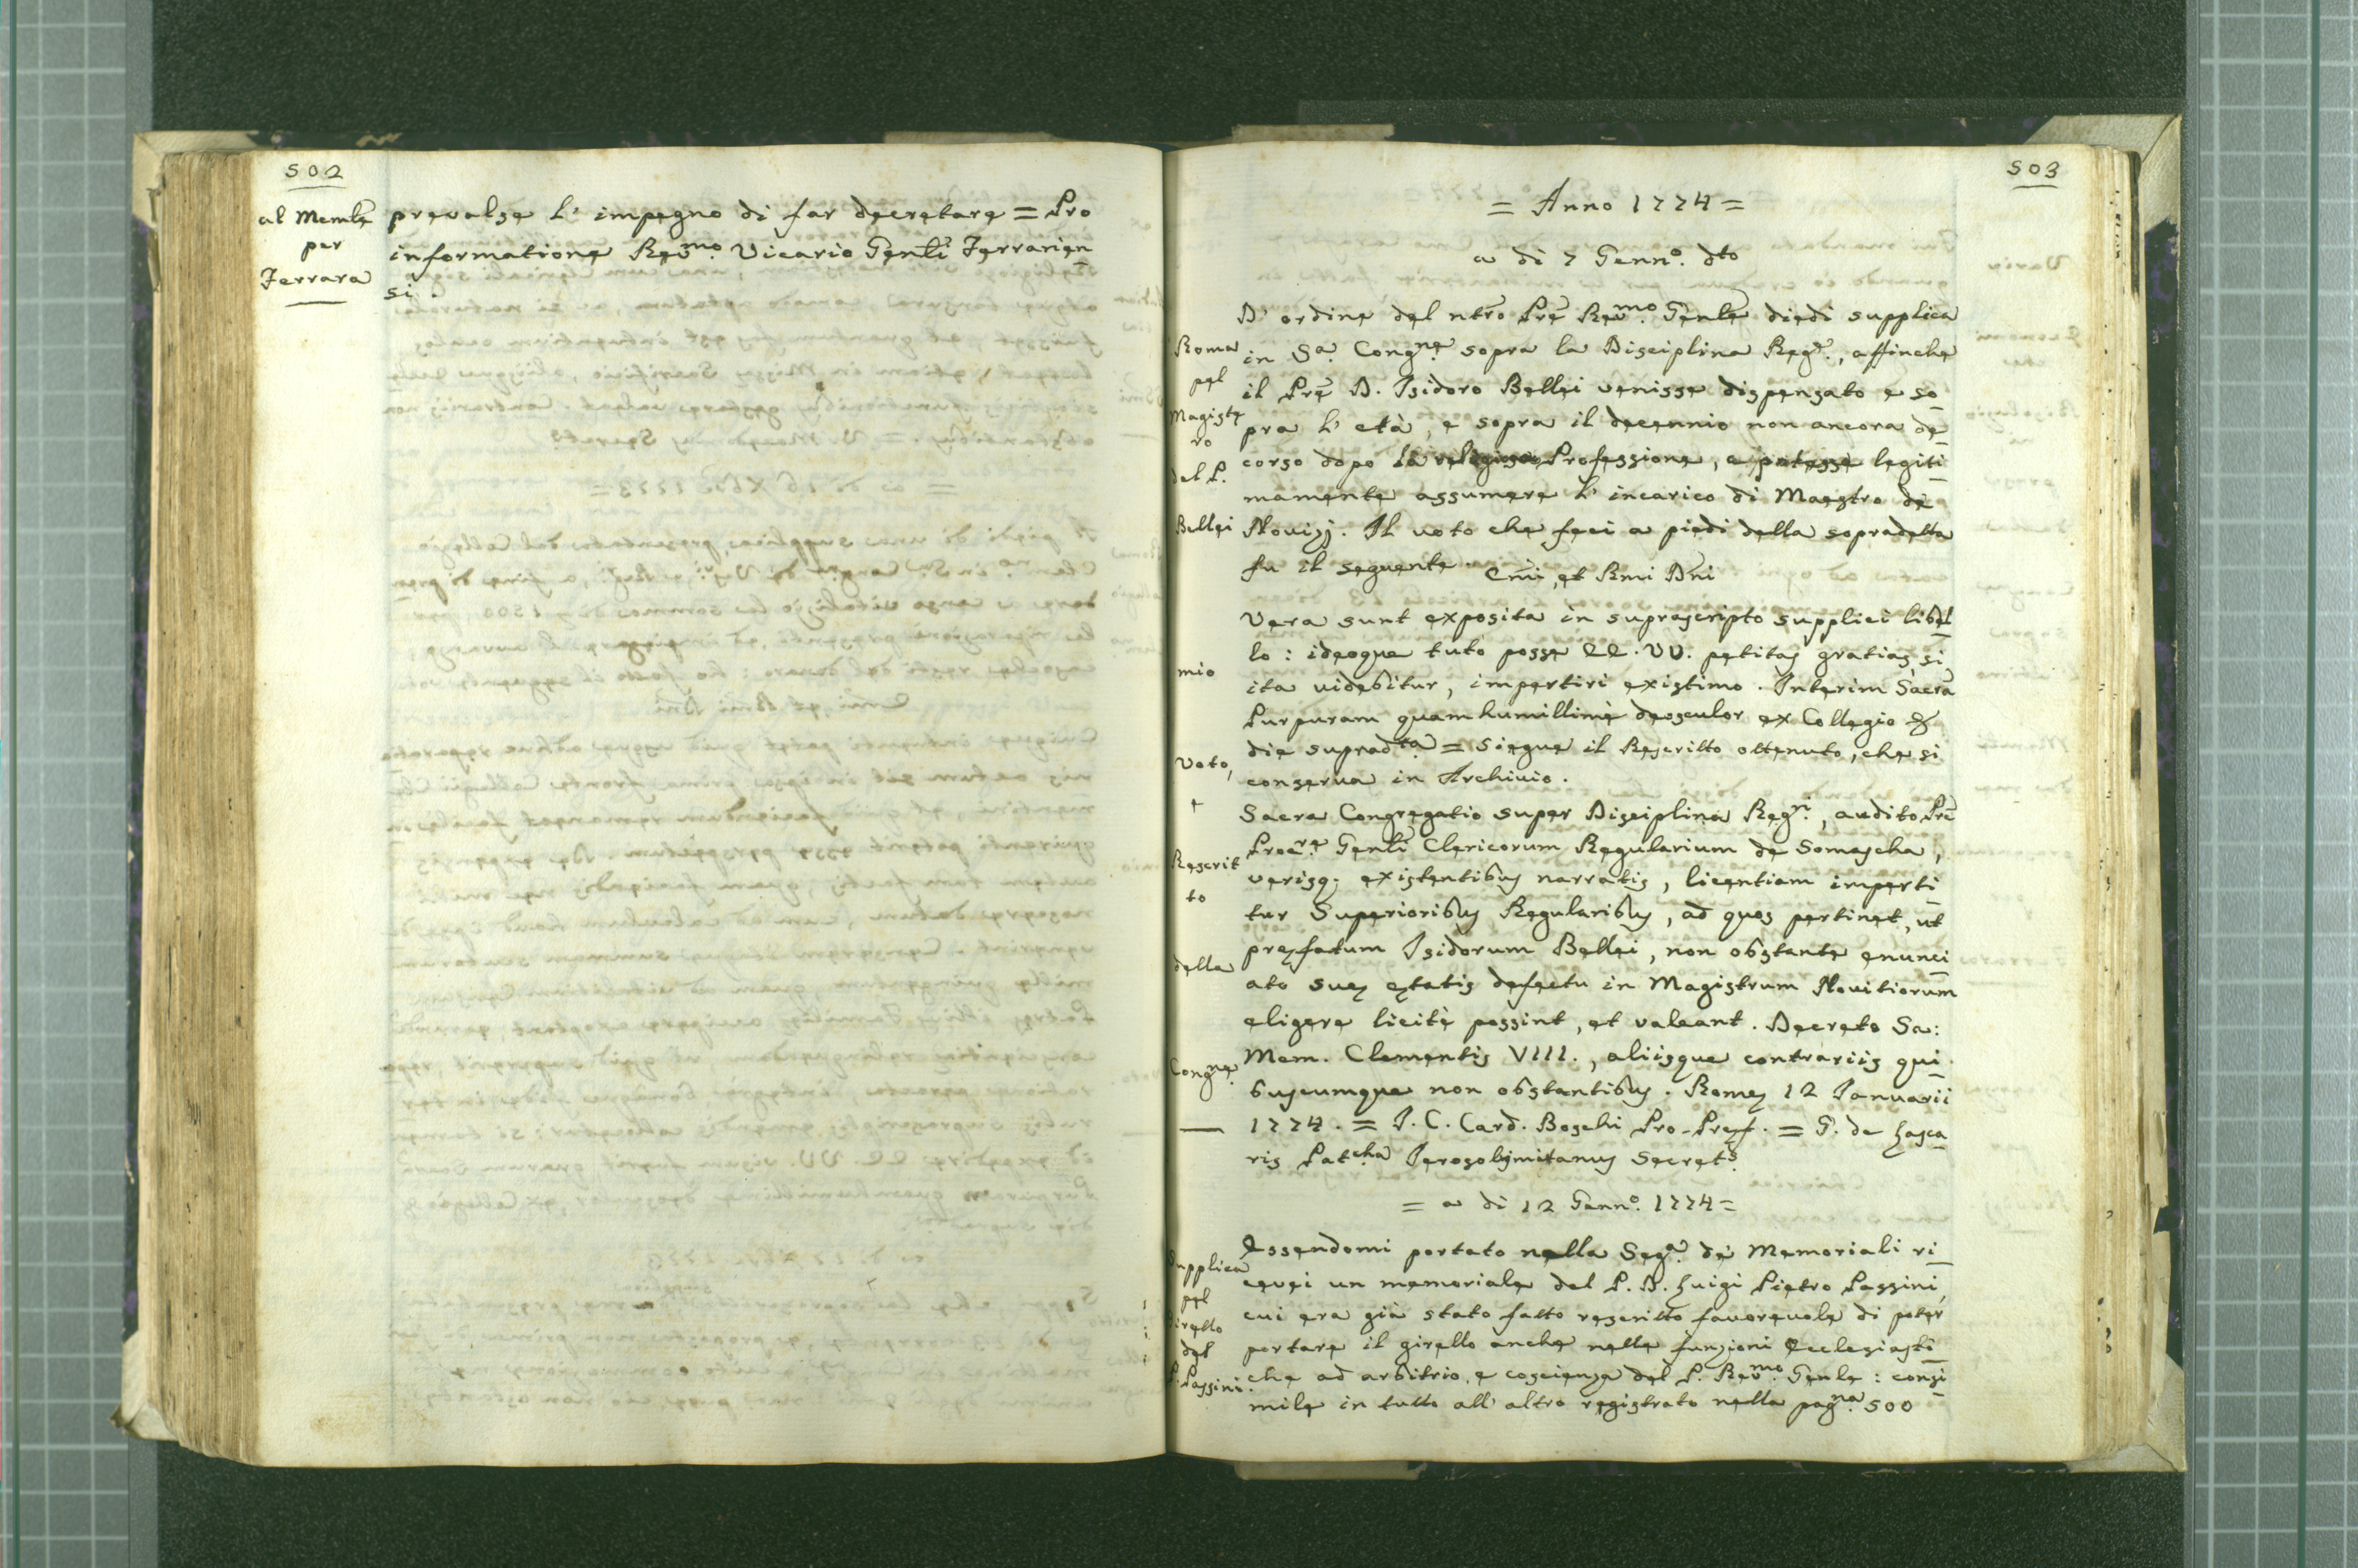 502
al Memle
per
Ferrara
prevalse l' impegno di far decretare = Pro
informatione Revmo. Vicario Genli Ferrarien
si.
503
= Anno 1774 =
a di 7 Genno. dto
Roma
pel
Magiste
ro
del P.
Bellei
mio
Voto,
e
Rescrit
to
della
Congne.
D' ordine del ntro Pre Revmo. Genle diedi supplica
in Sa. Congne. sopra la Disciplina Regre., affinche
il Pre D. Isidoro Bellei venisse dispensato e so
pra l' età, e sopra il decennio non ancora de
corso dopo la religiosa Professione, e potesse legiti
mamente assumere l' incarico di Maestro de
Novizj. Il voto che feci a piedi della sopradetta
fu il seguente.
Emi, et Rmi Dni
Vera sunt exposita in suprascripto supplici libel
lo: ideoque tuto posse EE. VV. petitas gratias, si
ita videbitur, impertiri existimo. Interim Sacra
Purpuram quam humillimè deosculor ex Collegio &
die supradta. = Siegue il Rescritto ottenuto, che si
conserva in Archivio.
Sacra Congregatio super Disciplina Regri., audito Pre
Procre. Genli Clericorum Regularium de Somascha,
verisq; existentibus narratis, licentiam imperti
tur Superioribus Regularibus, ad quos pertinet, ut
præfatum Isidorum Bellei, non obstante enunci
ato suæ ętatis defectu in Magistrum Novitiorum
eligere licitè possint, et valeant. Decreto Sa:
Mem. Clementis VIII., aliisque contrariis qui
buscumque non obstantibus. Romæ 12 Januarii
1774. = J. C. Card. Boschi Pro-Præf. = G. de Lasca
ris Patcha Jerosolymitanus Secrets.
= a di 12 Genno. 1774 =
Supplica
pel
Girello
del
P. Passini.
Essendomi portato nella Sega. de Memoriali ri
cevei un memoriale del P. D. Luigi Pietro Passini,
cui era già stato fatto rescritto favorevole di poter
portare il girello anche nelle funzioni Ecclesiasti
che ad arbitrio, e coscienza del P. Revmo. Genle: consi
mile in tutto all' altro registrato nella pagna. 500